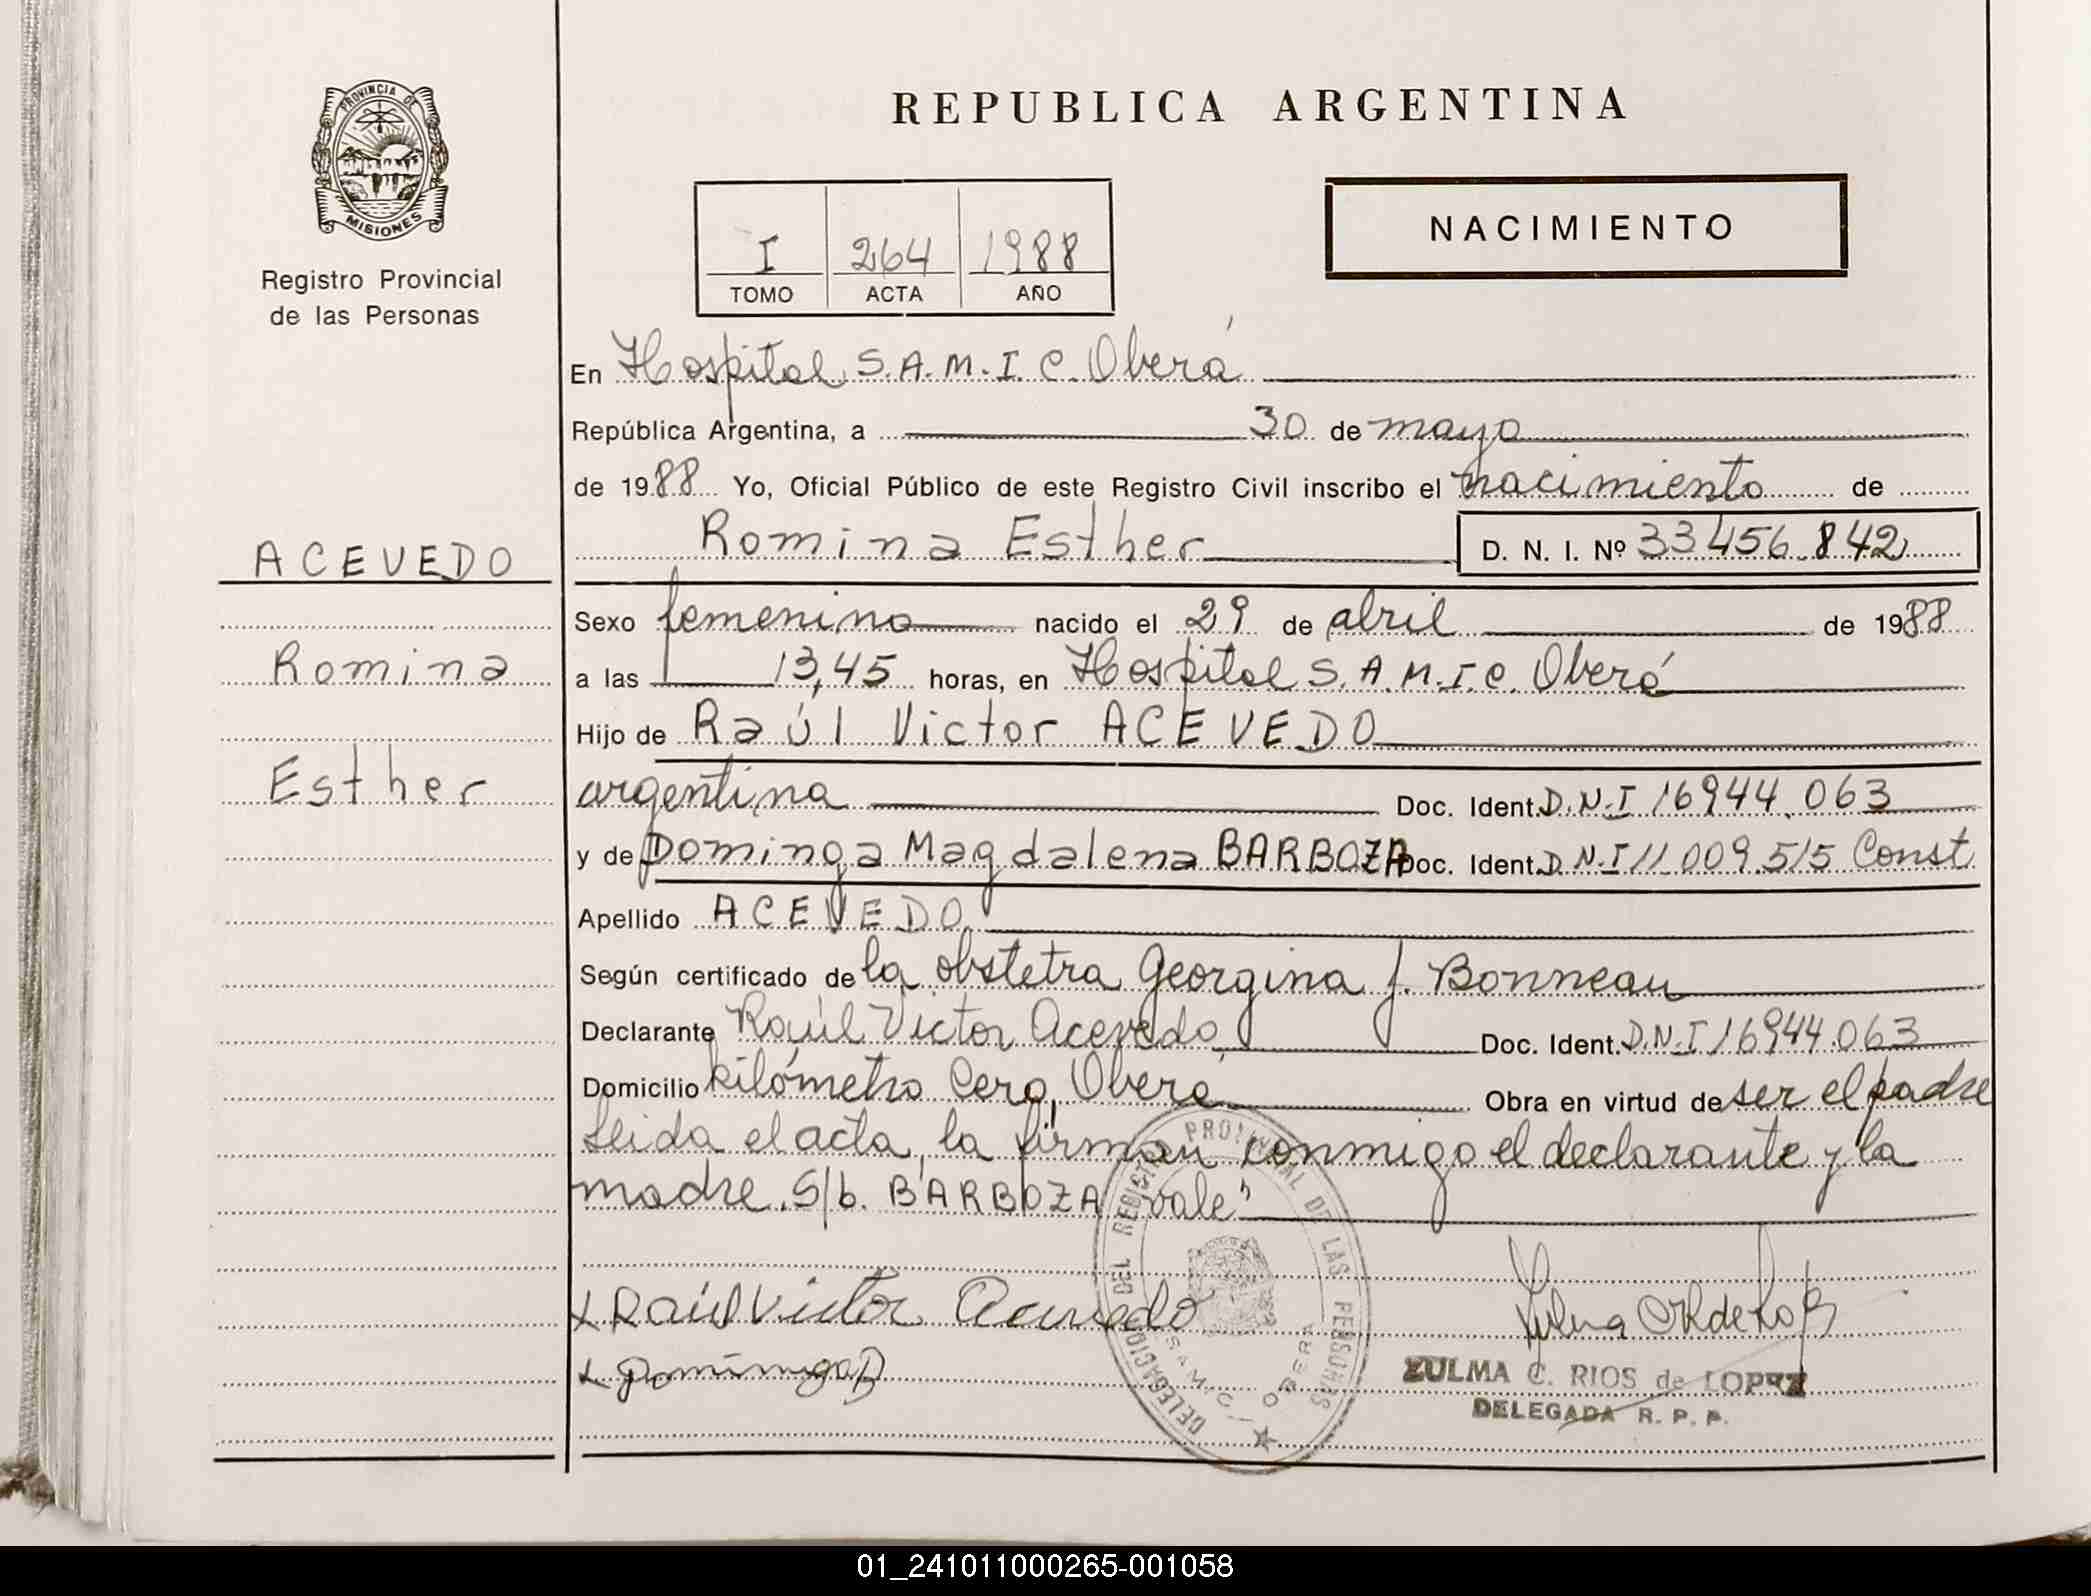 PROVINCIA DE
MISIONES
Registro Provincial
de las Personas
ACEVEDO
Romina
Esther
REPUBLICA ARGENTINA
I 264 1988
TOMO ACTA AÑO
NACIMIENTO
En Hospital S.A.M.I.C. Oberá
República Argentina, a 30 de mayo
de 1988 Yo, Oficial Público de este Registro Civil inscribo el nacimiento de
Romina Esther D. N. I. Nº 33456.842
Sexo femenino nacido el 29 de abril de 1988
a las 13,45 horas, en Hospital S.A.M.I.C. Oberá
Hijo de Raúl Victor ACEVEDO
argentina Doc. Ident. D.N.I 16944.063
y de Dominga Magdalena BARBOZA Doc. Ident. D.N.I 11.009.515 Const.
Apellido ACEVEDO
Según certificado de la obstetra Georgina J. Bonneau
Declarante Raúl Victor Acevedo Doc. Ident. D.N.I 16944.063
Domicilio kilómetro Cero, Oberá Obra en virtud de ser el padre
Leida el acta, la firman conmigo el declarante y la
madre. S/b. BARBOZA "vale"
x Raúl Victor Acevedo
x Dominga B
DELEGACION DEL REGISTRO PROVINCIAL DE LAS PERSONAS
S.A.M.I.C. - OBERA
ZULMA C. RIOS de LOPEZ
DELEGADA R. P. P.
01_241011000265-001058